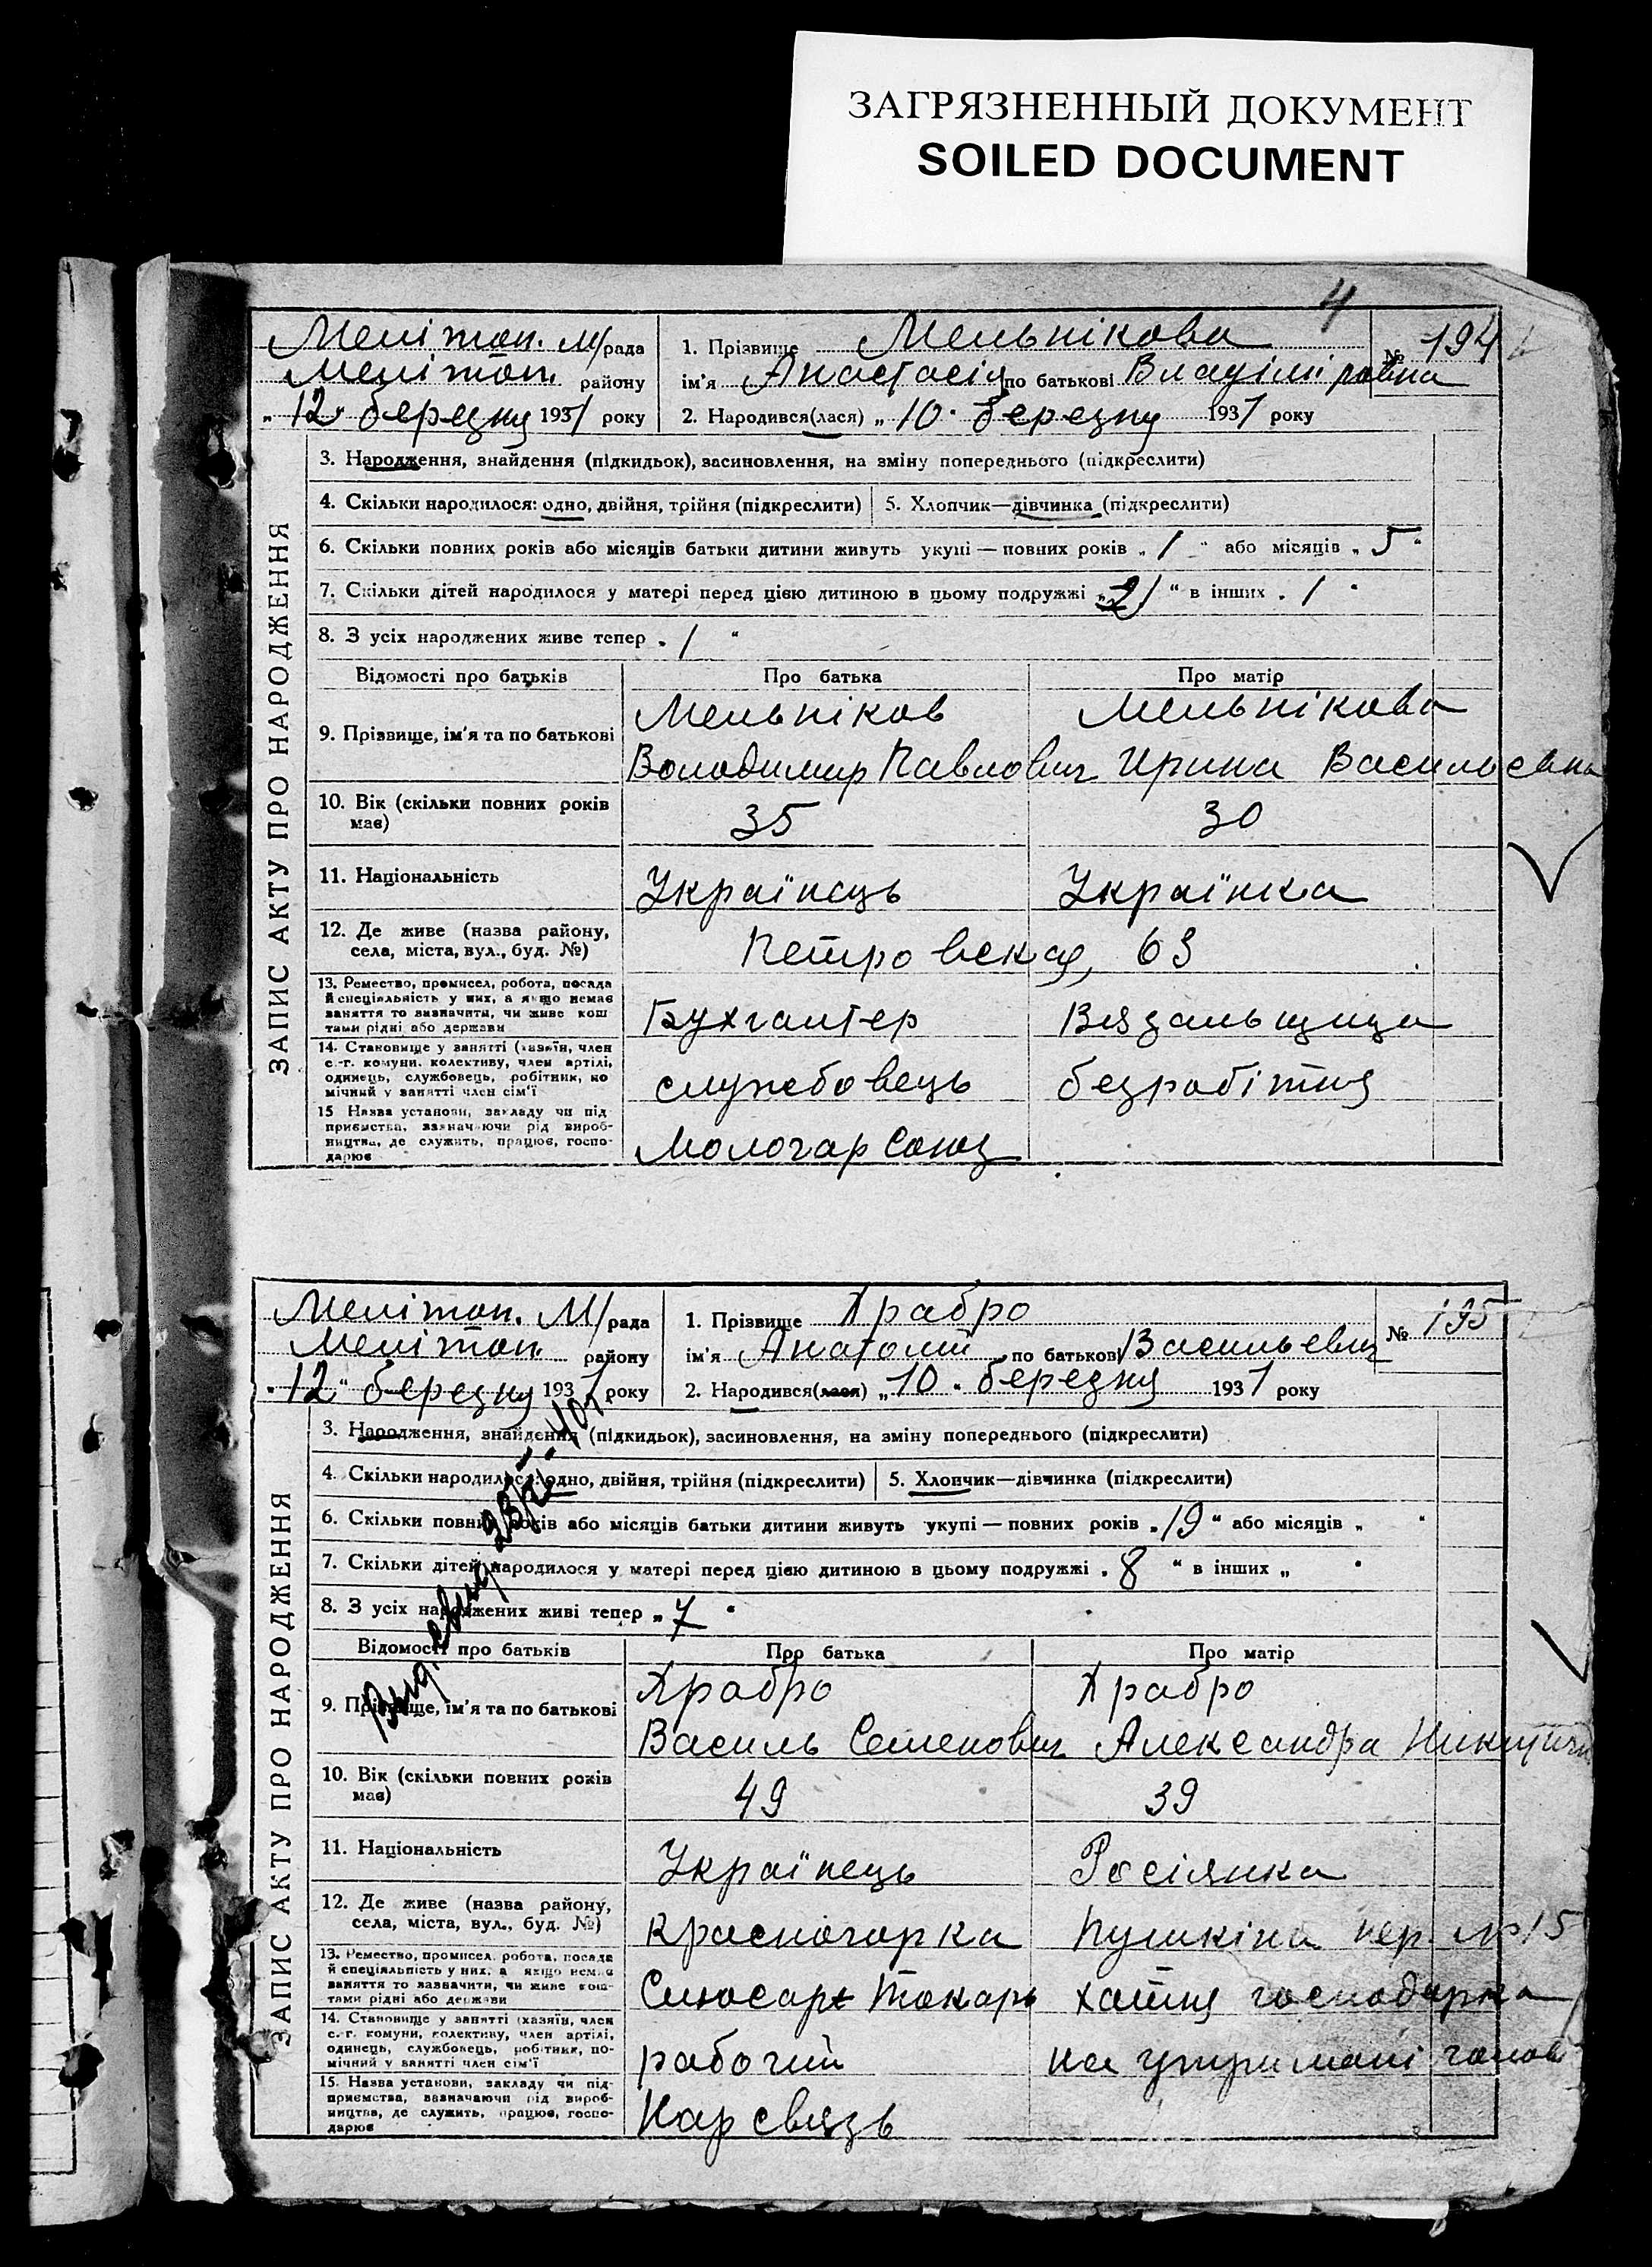 ЗАГРЯЗНЕННЫЙ ДОКУМЕНТ
SOILED DOCUMENT
4
ЗАПИС АКТУ ПРО НАРОДЖЕННЯ
Мелітоп. М/рада
Мелітоп. району
„12" березня 1931 року
1. Прізвище Мельнікова
№ 194
ім'я Анастасія по батькові Владімі ровна
2. Народився(лася) „10" березня 1931 року
3. Народження, знайдення (підкидьок), засиновлення, на зміну попереднього (підкреслити)
4. Скільки народилося: одно, двійня, трійня (підкреслити) 5. Хлопчик—дівчинка (підкреслити)
6. Скільки повних років або місяців батьки дитини живуть укупі — повних років „1" або місяців „5"
7. Скільки дітей народилося у матері перед цією дитиною в цьому подружжі „ " в інших „1"
8. З усіх народжених живе тепер „1"
Відомості про батьків Про батька Про матір
9. Прізвище, ім'я та по батькові
Мельніков Мельнікова
Володимир Павлович Ирина Васильевна
10. Вік (скільки повних років має) 35 30
11. Національність Українець Українка
12. Де живе (назва району, села, міста, вул., буд. №) Петровская, 63
13. Ремество, промисел, робота, посада й спеціяльність у них, а якщо немає заняття то зазначити, чи живе кош тами рідні або держави Бухгалтер Вязальщица
14. Становище у занятті (хазяїн, член с.-г. комуни, колективу, член артілі, одинець, службовець, робітник, по мічний у занятті член сім'ї службовець безробітня
15 Назва установи, закладу чи під приємства, зазначаючи рід вироб- ництва, де служить, працює, госпо- дарює Молочар Союз
ЗАПИС АКТУ ПРО НАРОДЖЕННЯ
Мелітоп. М/рада
Мелітоп. району
„12" березня 1931 року
1. Прізвище Храбро
№ 195
ім'я Анатолій по батькові Васильевич
2. Народився(лася) „10" березня 1931 року
3. Народження, знайдення (підкидьок), засиновлення, на зміну попереднього (підкреслити)
4. Скільки народилося: одно, двійня, трійня (підкреслити) 5. Хлопчик—дівчинка (підкреслити)
6. Скільки повних років або місяців батьки дитини живуть укупі — повних років „19" або місяців „ "
7. Скільки дітей народилося у матері перед цією дитиною в цьому подружжі „8" в інших „ "
8. З усіх народжених живі тепер „7"
Відомості про батьків Про батька Про матір
9. Прізвище, ім'я та по батькові
Храбро Храбро
Василь Семенович Александра
10. Вік (скільки повних років має) 49 39
11. Національність Українець Росіянка
12. Де живе (назва району, села, міста, вул., буд. №) Красногорка Пушкіна пер. №15
13. Ремество, промисел, робота, посада й спеціяльність у них, а якщо немає заняття то зазначити, чи живе кош- тами рідні або держави Слюсарь Токарь хатня господарка
14. Становище у занятті (хазяїн, член с.-г. комуни, колективу, член артілі, одинець, службовець, робітник, по- мічний у занятті член сім'ї рабочий на утримані
15. Назва установи, закладу чи під- приємства, зазначаючи рід вироб- ництва, де служить, працює, госпо- дарює Нар связь